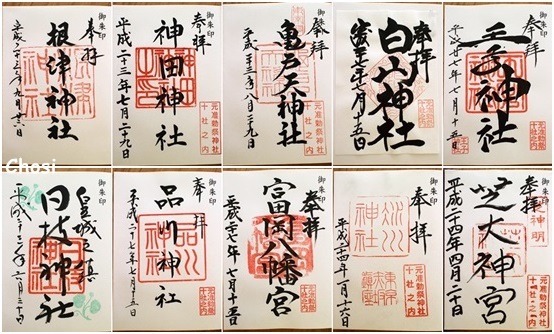 御朱印
奉拝
根津神社
御朱印
奉拝
神田神社
平成二十三年七月二十九日
元准勅祭神社
十社之内
御朱印
奉拝
亀戸天神社
平成二十三年八月二十九日
元准勅祭神社
十社之内
奉拝
白山神社
七月十五日
御朱印
奉拝
王子神社
平成廿七年七月十五日
元准勅祭神社
十社之内
Chosi
御朱印
皇城之鎮
日枝神社
御朱印
奉拝
品川神社
平成二十七年七月十五日
元准勅祭神社
十社之内
御朱印
奉拝
富岡八幡宮
平成二十七年七月十五日
元准勅祭神社
十社之内
御朱印
奉拝
氷川神社
平成二十四年一月十六日
元准勅祭神社
十社之内
御朱印
奉拝
芝大神宮
平成二十四年四月二十日
元准勅祭神社
十社之内